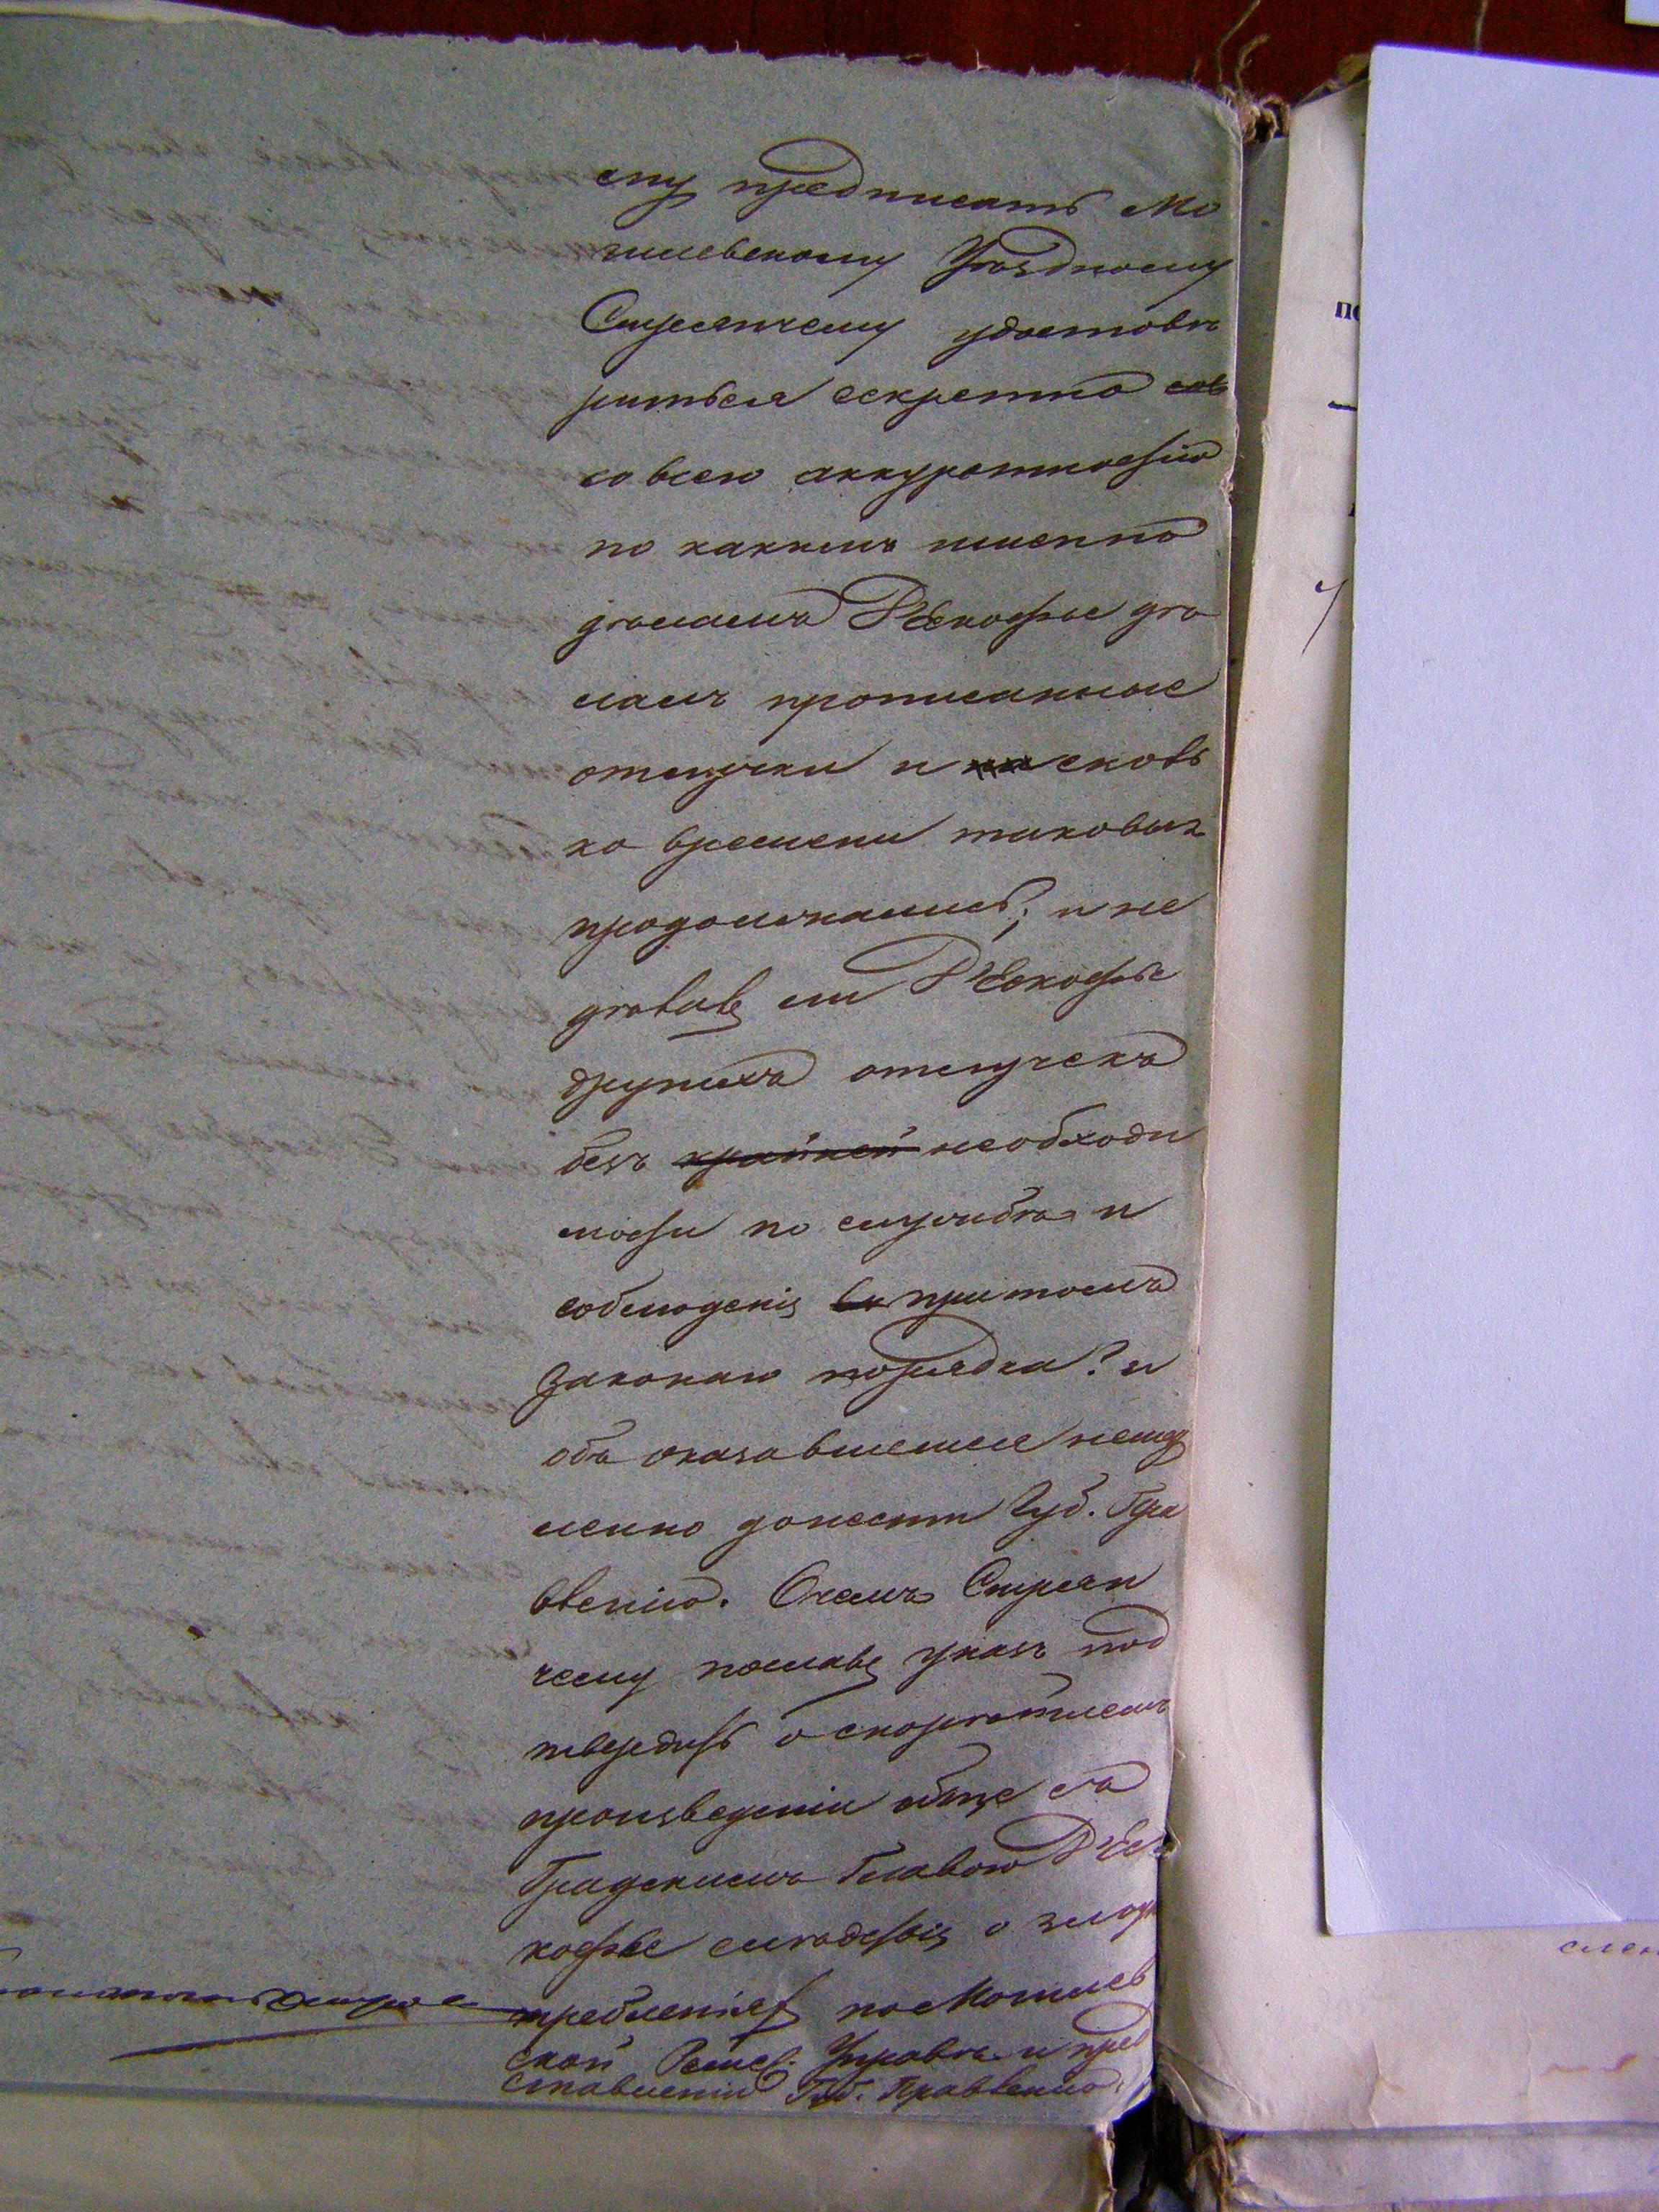 ему предписать Мо
гилевскому Уѣздному
Стряпчему удостовѣ
риться секретно
со всею аккуратностію
по какимъ именно
дѣламъ
ламъ прописанные
отлучки и сколь
ко времени таковыя
продолжались; и не
дѣлалъ ли
другихъ отлучекъ
безъ крайней необходи
мости по службѣ и
соблюденія при томъ
законаго порядка? и
объ оказавшемся немед
ленно донести Губ. Пра
вленію. О чемъ Стряп
чему пославъ указъ под
твердить о скорѣйшемъ
произведеніи обще съ
Градскимъ Главою
слѣдствія о злоу
требленіях по Могилев
ской Ремес. Управѣ и пред
ставленіи Губ. Правленію.
по